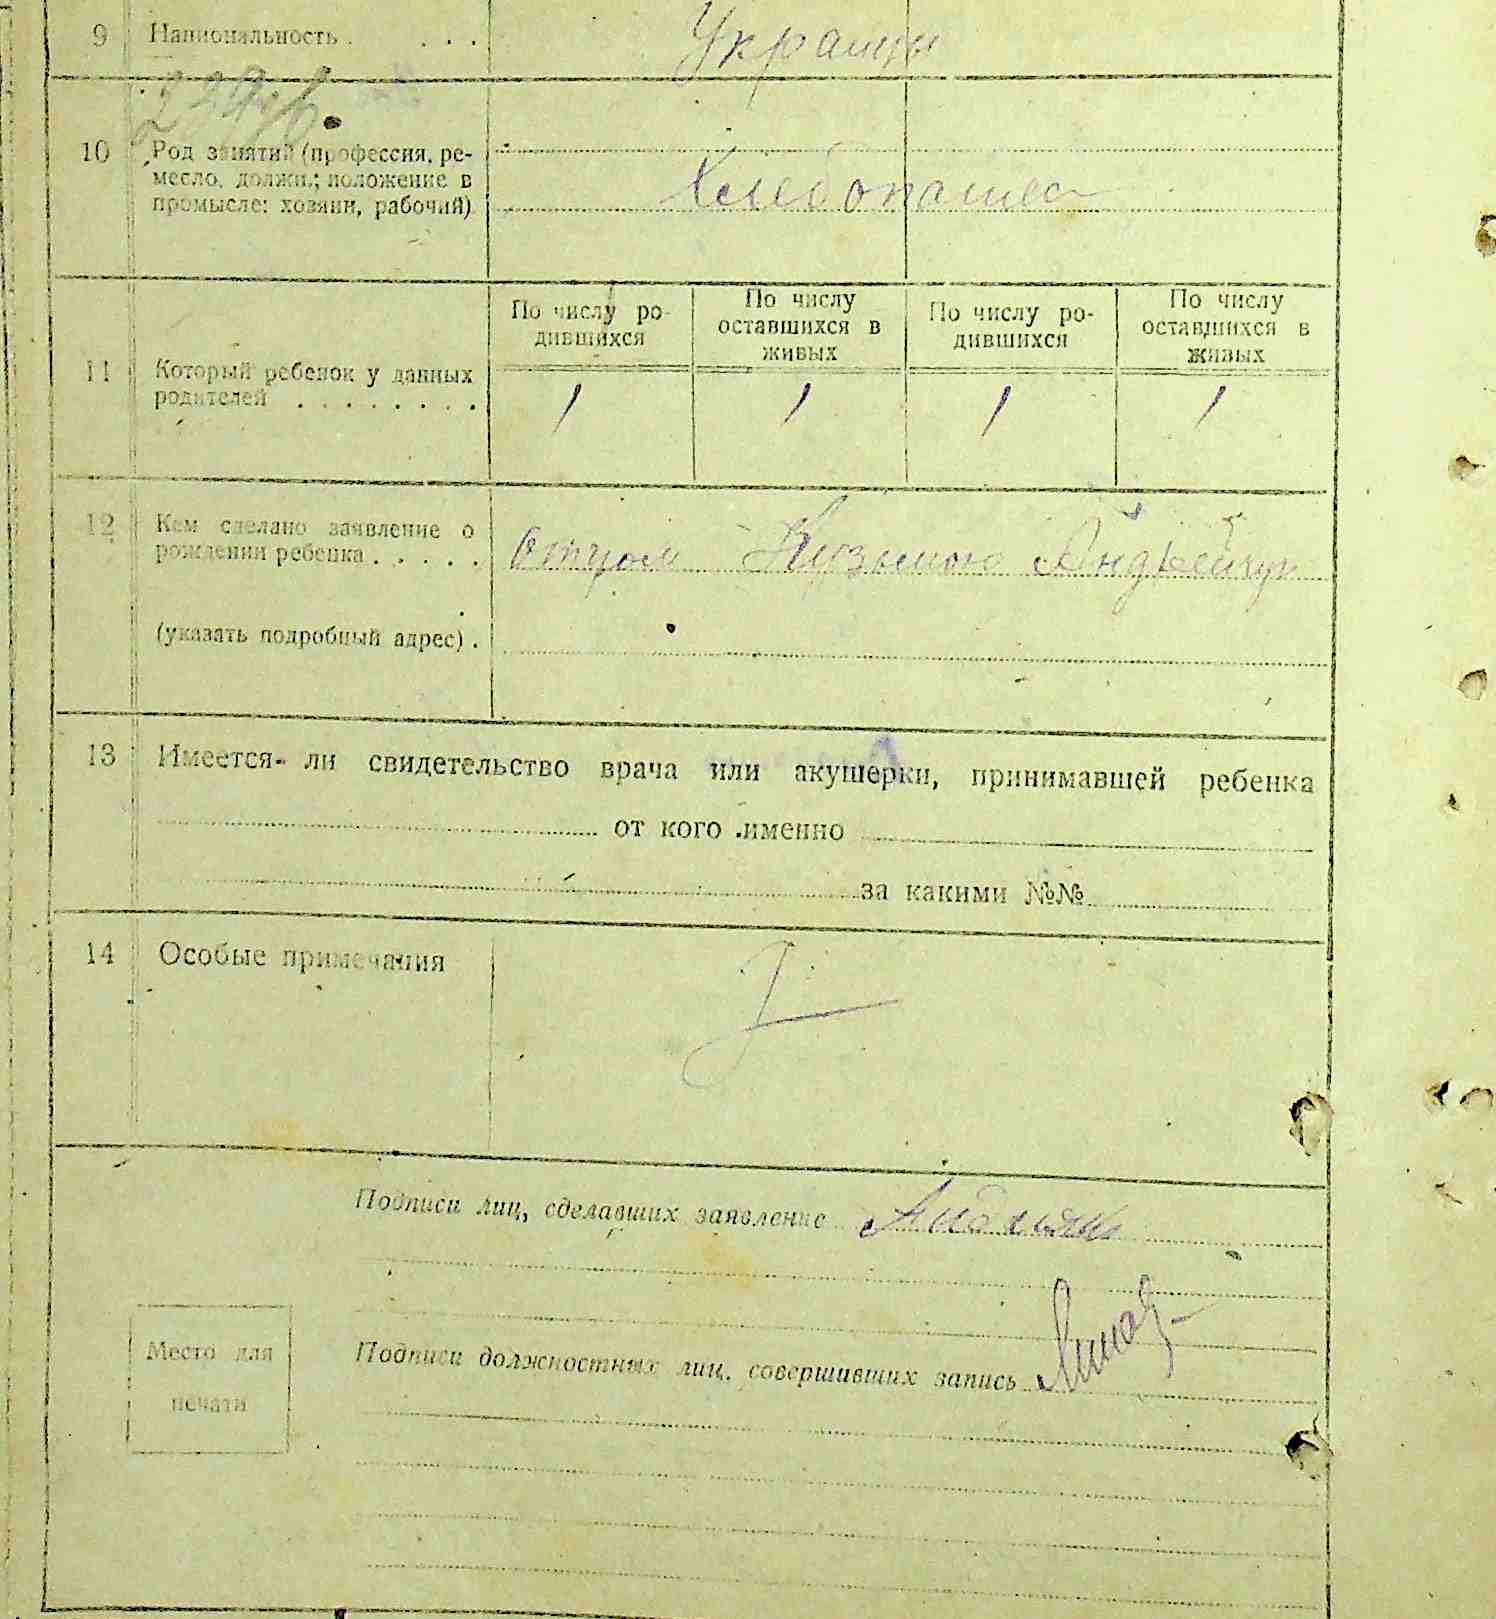 9 Национальность . . . . Украинцы
10 Род занятий (профессия, ре-
месло, должн.; положение в
промысле: хозяин, рабочий)
Хлебопашест
По числу ро-
дившихся
По числу
оставшихся в
живых
По числу ро-
дившихся
По числу
оставшихся в
живых
11 Который ребенок у данных
родителей . . . . . . . .
1 1 1 1
12 Кем сделано заявление о
рождении ребенка . . . . .
Отцом Кузьмою Андрейчук
(указать подробный адрес) .
13 Имеется-ли свидетельство врача или акушерки, принимавшей ребенка
от кого именно
за какими №№
14 Особые примечания
Подписи лиц, сделавших заявление
Подписи должностных лиц, совершивших запись
Место для
печати